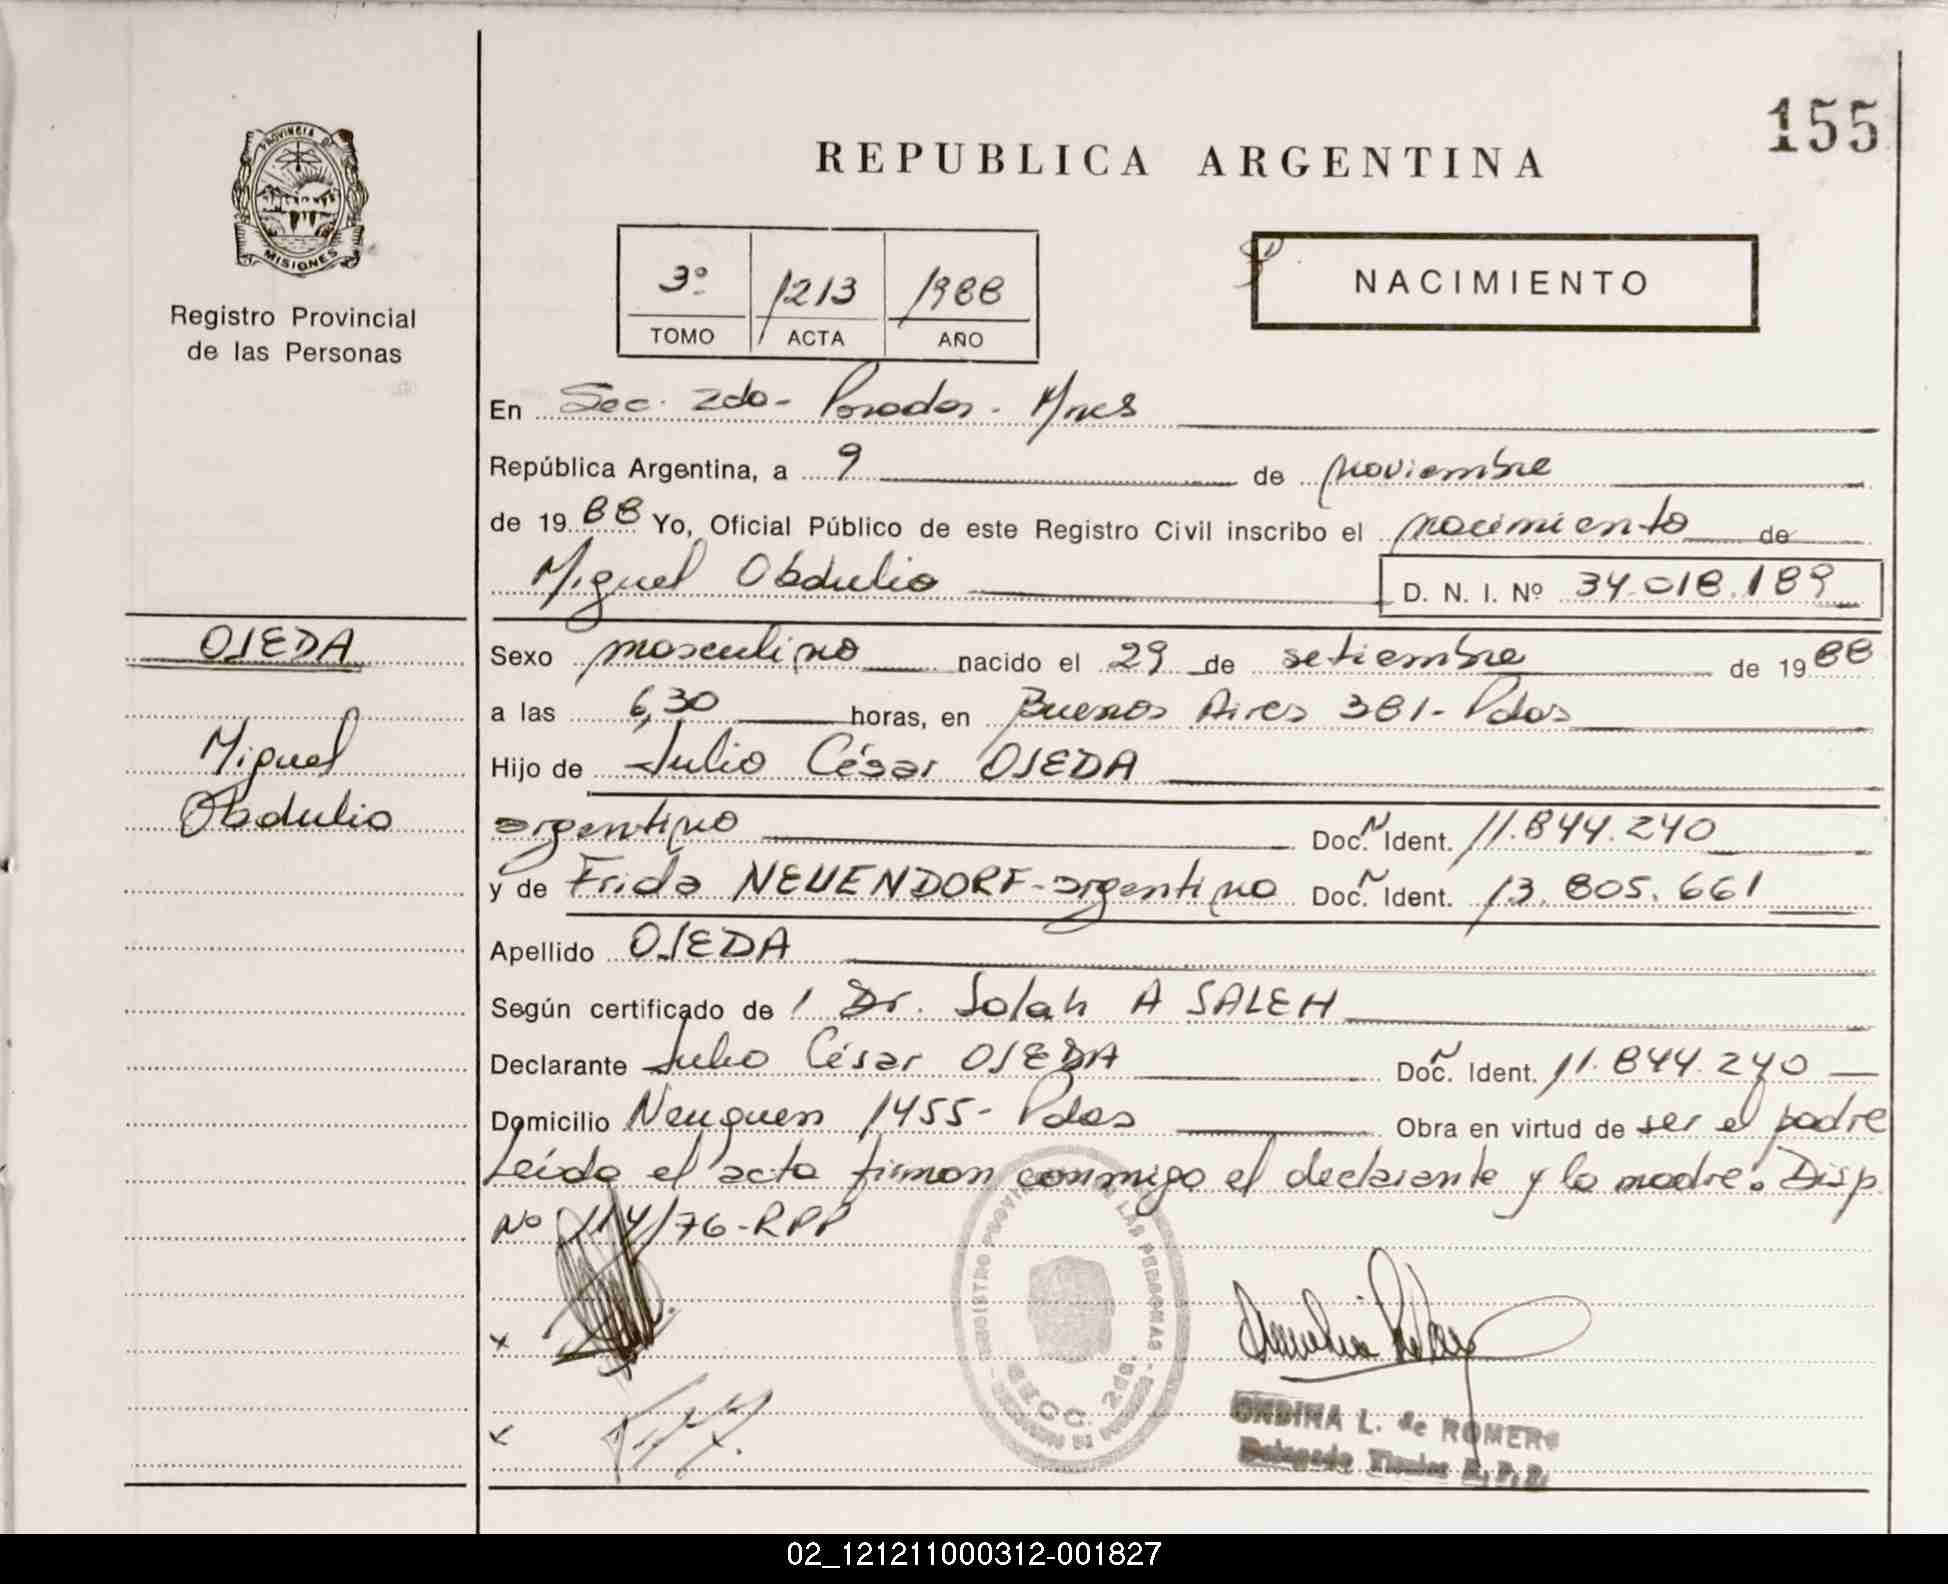 155
PROVINCIA DE
MISIONES
Registro Provincial
de las Personas
REPUBLICA ARGENTINA
3º 1213 1988
TOMO ACTA AÑO
NACIMIENTO
En Sec. 2da - Posadas - Mnes
República Argentina, a 9 de noviembre
de 1988 Yo, Oficial Público de este Registro Civil inscribo el nacimiento de
Miguel Obdulio D. N. I. Nº 34.018.189
OJEDA
Miguel
Obdulio
Sexo masculino nacido el 29 de setiembre de 1988
a las 6,30 horas, en Buenos Aires 381 - Pdas
Hijo de Julio César OJEDA
argentino Doc. Ident. 11.844.240
y de Frida NEUENDORF - argentina Doc. Ident. 13.805.661
Apellido OJEDA
Según certificado de / Dr. Salah A SALEH
Declarante Julio César OJEDA Doc. Ident. 11.844.240
Domicilio Neuquen 1455 - Pdas Obra en virtud de ser el padre
Leída el acta firman conmigo el declarante y la madre. Disp
Nº 114/76 - RPP
REGISTRO PROVINCIAL DE LAS PERSONAS
SECC. 2da.
x
x
ONDINA L. de ROMERO
Delegada Titular R. P. P.
02_121211000312-001827